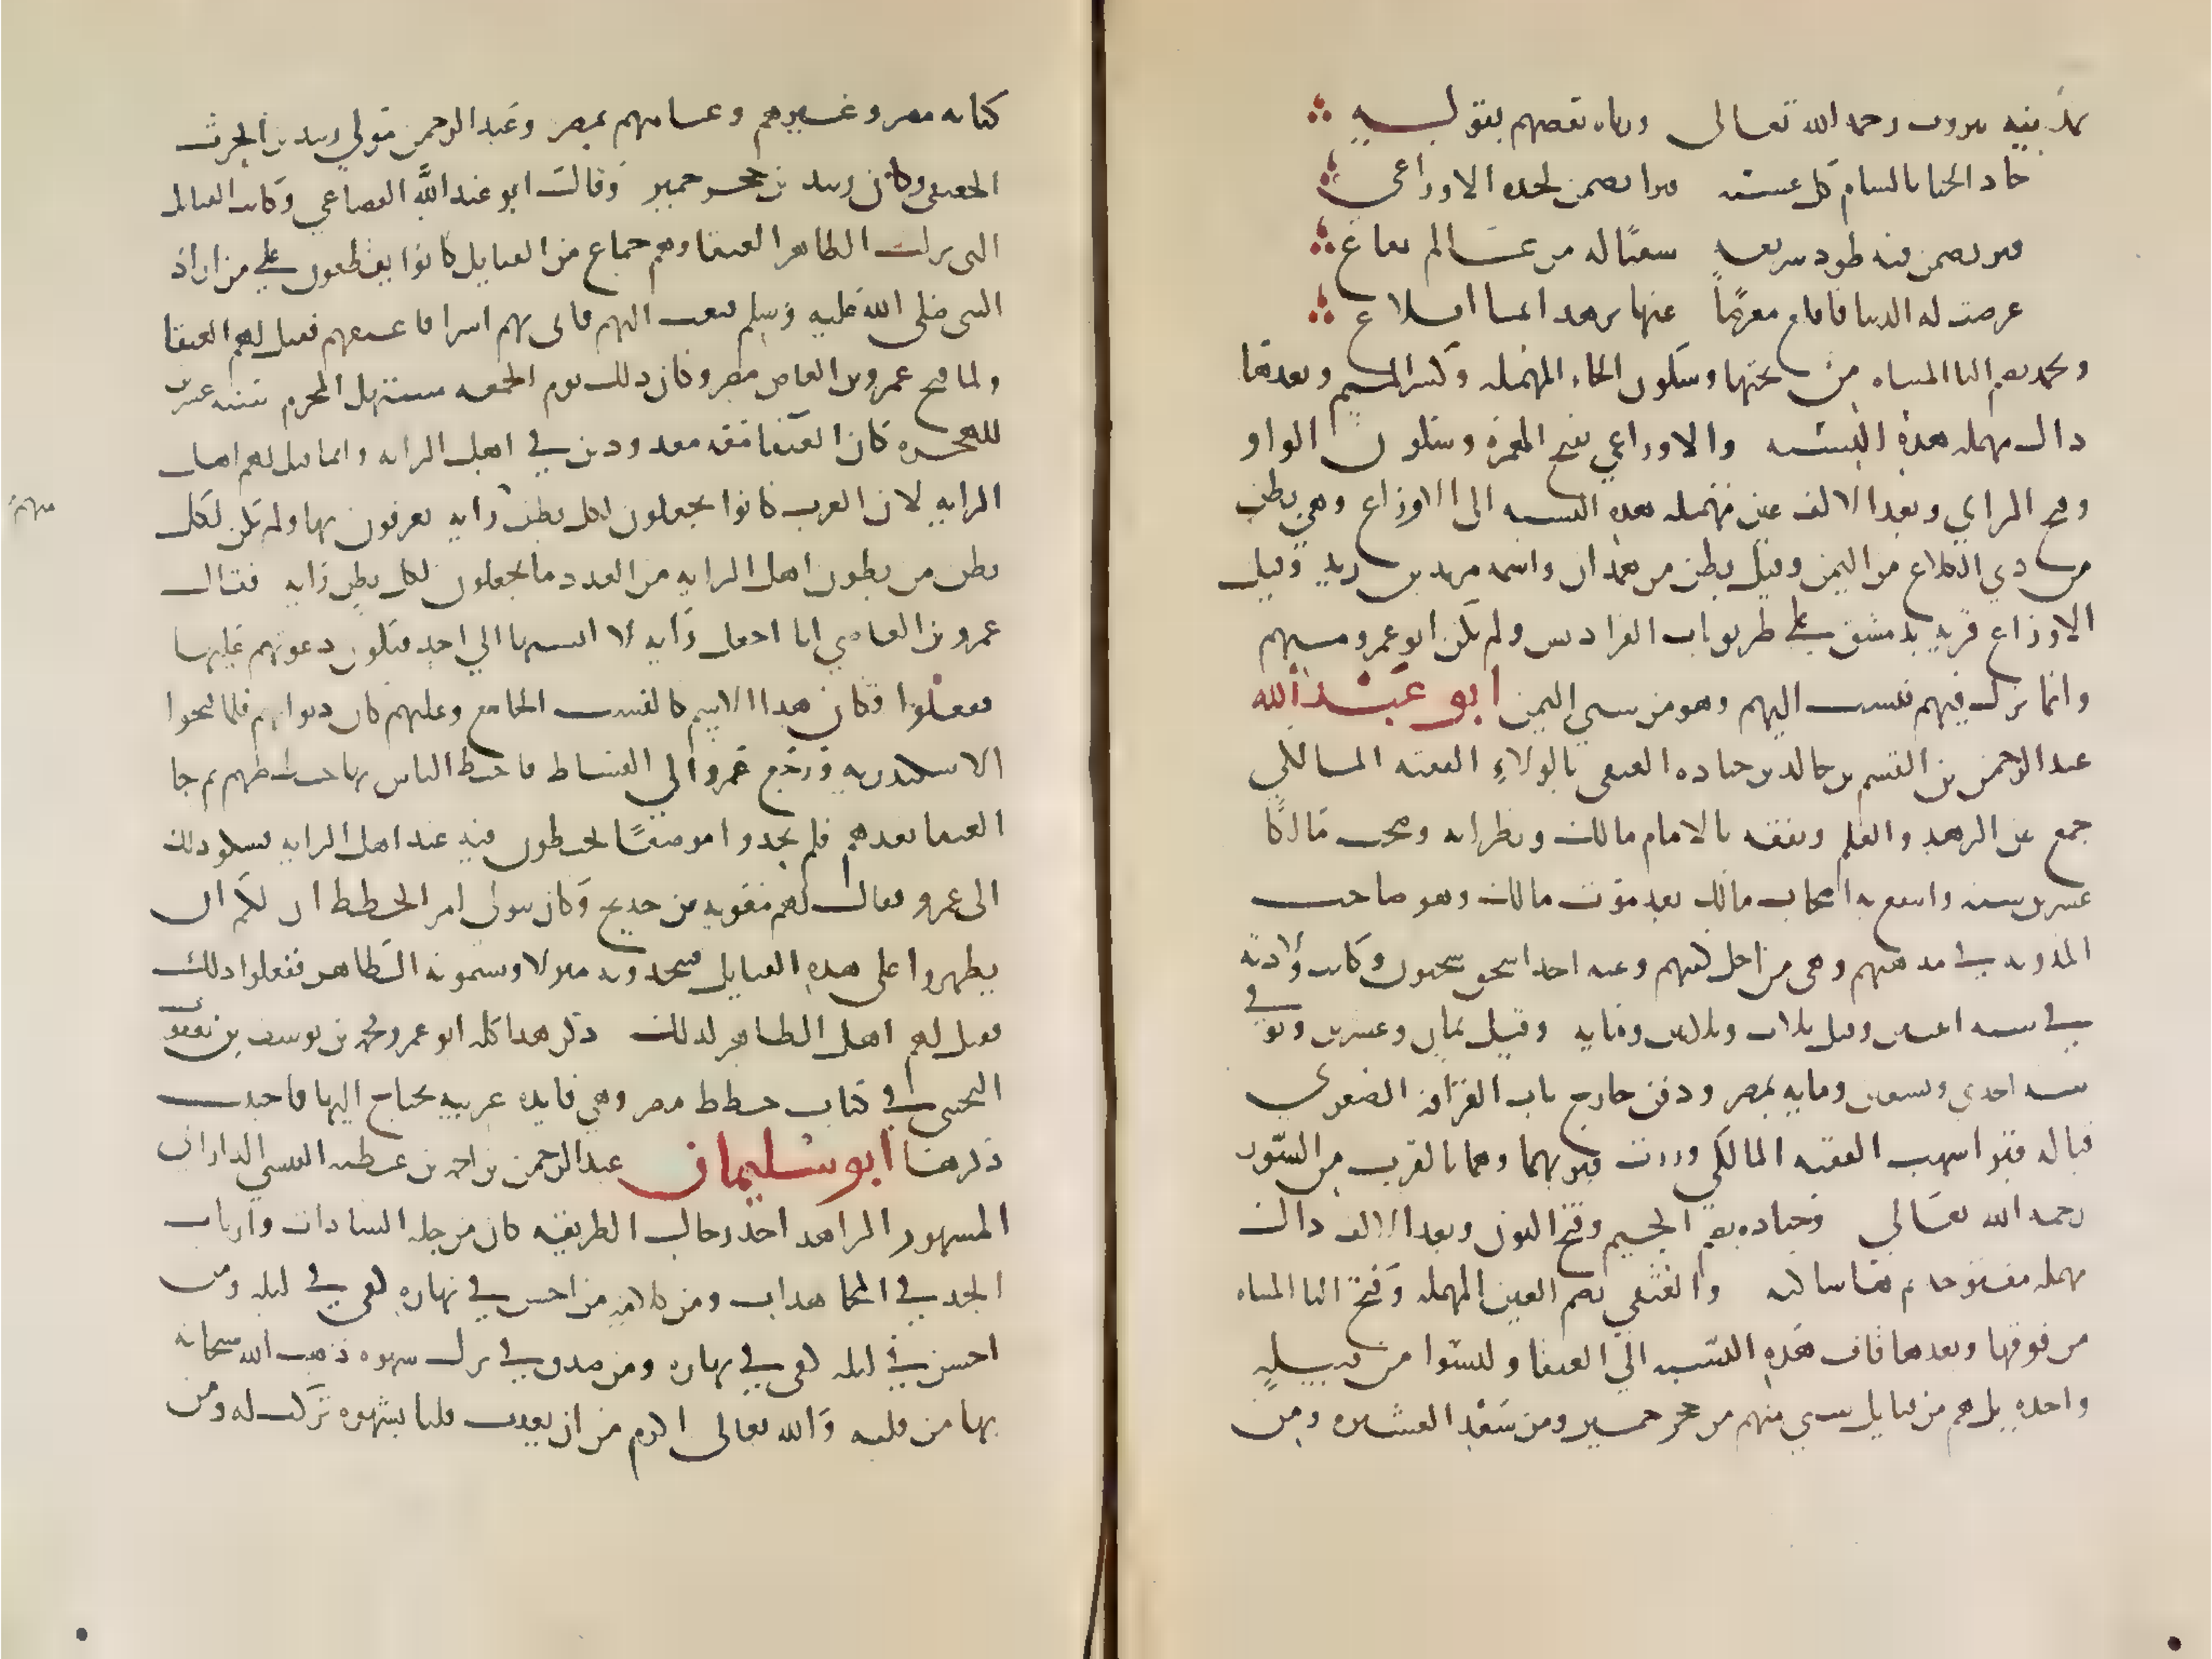 بمدينة بيروت رحمه الله تعالى ورثاه بعضهم بقوله
جاد الحيا بالشام كل عشية قبرا تضمن لحده الاوزاعي
قبر تضمن فيه طود شريعة سقيًا له من عالم نفاع
عرضت له الدنيا فاقلع معرضًا عنها بزهد ايما اقلاع
ويحمد بضم اليا المثناه من تحتها وسكون الحاء المهمله وكسر الميم وبعدها
دال مهمله هذه النسبه والاوزاعي بفتح الهمزة وسكون الواو
وفتح الزاي وبعد الالف عين مهمله هذه النسبه الى الاوزاع وهي بطن
من ذي الكلاع من اليمن وقيل بطن من همدان واسمه مرثد بن زيد وقيل
الاوزاع قريه بدمشق على طريق باب الفراديس ولم يكن ابو عمرو منهم
وانما نزل فيهم فنسب اليهم وهو من سبي اليمن ابو عبد الله
عبد الرحمن بن القسم بن خالد بن جناده العتقي بالولاءِ الفقيه المالكي
جمع بين الزهد والعلم وتفقه بالامام مالك ونظرائه وصحب مالكًا
عشرين سنه وانتفع به اصحاب مالك بعد موت مالك وهو صاحب
المدونه في مذهبهم وهي من اجل كتبهم وعنه اخذ سحنون وكانت ولادته
في سنه اثنتين وقيل ثلاث وثلاثين ومايه وقيل ثمان وعشرين وتوفي
سنه احدى وتسعين ومايه بمصر ودفن خارج باب القرافه الصغرى
قباله قبر اشهب الفقيه المالكي وزرت قبريهما وهما بالقرب من السور
رحمه الله تعالى وجناده بضم الجيم وفتح النون وبعد الالف دال
مهمله مفتوحه ثم هاساكنه والعتقي بضم العين المهمله وفتح التا المثناه
من فوقها وبعدها قاف هذه النسبه الي العتقا وليسوا من قبيلةٍ
واحده بل هم من قبايل شتي منهم من حجر حمير ومن سعد العشيره ومن
كنانه مضر وغيرهم وعامتهم بمصر وعبد الرحمن مولي زبيد بن الحرث
العتقي وكان زبيد من حجر حمير وقال ابو عبد الله القضاعي وكانت القبايل
التى نزلت الظاهر العتقا وهم جماع من القبايل كانوا يقطعون على من اراد
النبي صلى الله عليه وسلم فبعث اليهم فاتى بهم اسرا فاعتقهم فقيل لهم العتقا
ولما فتح عمرو بن العاص مصر وكان ذلك يوم الجمعه مستهل المحرم سنه عشرين
للهجره كان العتقا معه معدودين في اهل الرايه وانما قيل لهم اهل
الرايه لان العرب كانوا يجعلون لكل بطن رايه يعرفون بها ولم يكن لكل
بطن من بطون اهل الرايه من العدد ما يجعلون لكل بطن رايه فقال
عمرو بن العاصي انا اجعل رايه لا انسبها الي احد فتكون دعوتهم عليها
ففعلوا وكان هذا الاسم كالنسب الجامع وعليهم كان ديوانهم فلما فتحوا
الاسكندريه ورجع عمرو الي الفسطاط فاختط الناس بها خططهم ثم جا
العتقا بعدهم فلم يجدوا موضعًا يختطون فيه عند اهل الرايه فشكوا ذلك
الى عمرو فقال لهم معويه بن حديج وكان يتولى امر الخطط ارى لكم ان
يظهروا على هذه القبايل فتتخذونه منزلا وتسمونه الظاهر ففعلوا ذلك
فقيل لهم اهل الظاهر لذلك ذكر هذا كله ابو عمرو محمد بن يوسف بن يعقوب
التجيبي في كتاب خطط مصر وهي فايده غريبه يحتاج اليها فاحببت
ذكرها ابو سليمان عبد الرحمن بن احمد بن عطيه العنسي الداراني
المشهور الزاهد احد رجال الطريقه كان من جله السادات وارباب
الجد في المجاهدات ومن كلامه من احسن في نهاره كفي في ليله ومن
احسن في ليله كفي في نهاره ومن صدق في ترك شهوه ذهب الله سبحانه
بها من قلبه والله تعالى اكرم من ان يعذب قلبا بشهوه تركت له ومن
مهم